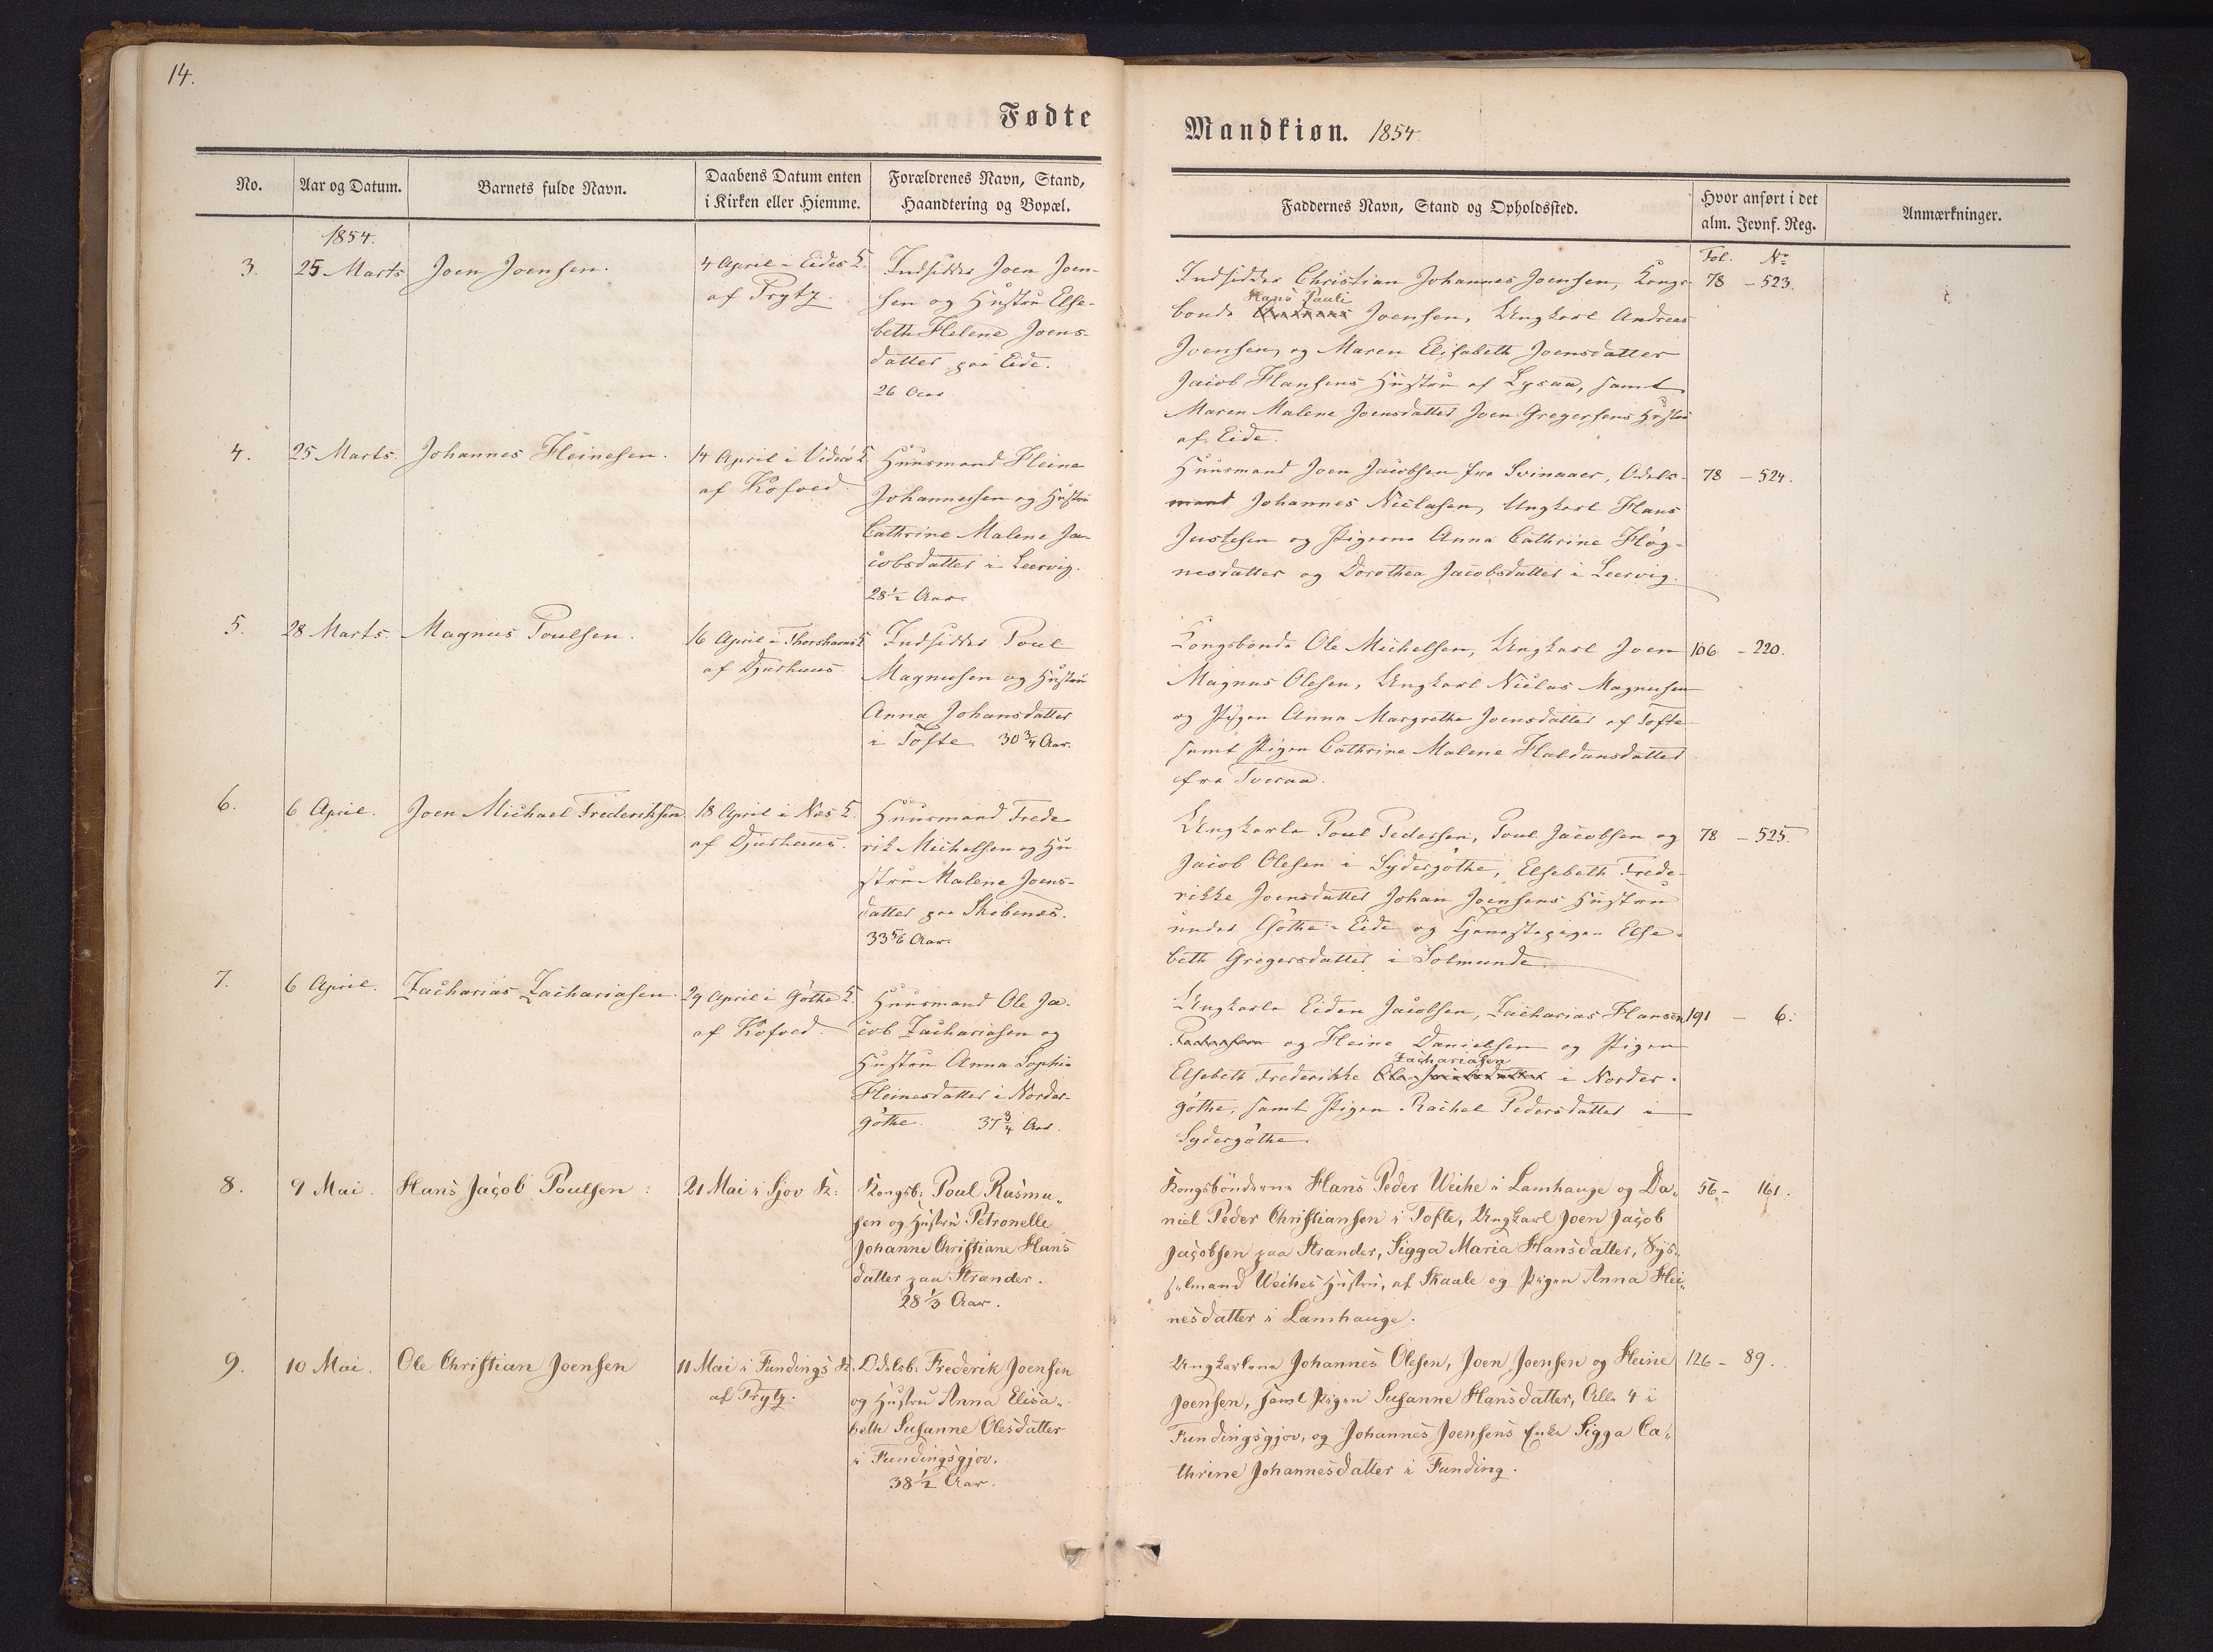 14.
Fødte
No.
Aar og Datum.
Barnets fulde Navn.
Daabens Datum enten
i Kirken eller Hiemme.
Forældrenes Navn, Stand,
Haandtering og Bopæl.
1854.
3.
25 Marts
Joen Joensen.
4 April i Eides K.
af Prytz.
Indsidder Joen Joen-
sen og Hustru Else-
beth Helene Joens-
datter paa Eide.
26 Aar
4.
25 Marts.
Johannes Heinesen.
14 April i Viderö K
af Kofoed.
Huusmand Heine
Johannessen og Hustru
Cathrine Malene Ja-
cobsdatter i Leervig.
28½ Aar
5.
28 Marts.
Magnus Poulsen.
16 April i Thorshavns K
af Djurhuus.
Indsidder Poul
Magnusen og Hustru
Anna Johansdatter
i Tofte. 30¾ Aar.
6.
6 April.
Joen Michael Frederiksen
18 April i Næs K.
af Djurhuus.
Huusmand Frede-
rik Michelsen og Hu-
stru Malene Joens-
datter paa Skibenæs.
33 5/6 Aar.
7.
6 April.
Zacharias Zachariasen.
29 April i Göthe K.
af Kofoed.
Huusmand Ole Ja-
cob Zachariasen og
Hustru Anna Sophie
Heinesdatter i Norder-
göthe. 37¾ Aar.
8.
9 Mai.
Hans Jacob Poulsen.
21 Mai i Sjov K:
Kongsb: Poul Rasmu-
sen og Hustru Petronelle
Johanne Christiane Hans
datter paa Strænder.
28⅓ Aar.
9.
10 Mai.
Ole Christian Joensen
11 Mai i Fundings K.
af Prytz.
Odelsb: Frederik Joensen
og Hustru Anna Elisa-
beth Susanne Olesdatter
i Fundingsgjov.
38½ Aar.
Mandkiøn. 1854.
Faddernes Navn, Stand og Opholdssted.
Hvor anført i det
alm. Jevnf. Reg.
Anmærkninger.
Fol. No
Indsidder Christian Johannes Joensen, Kongs- 78 - 523.
Hans Pauli
bonde Joensen, Ungkarl Andreas
Joensen, og Maren Elisabeth Joensdatter
Jacob Hansens Hustru af Lysaa, samt
Maren Malene Joensdatter Joen Gregersens Hustru
af Eide.
Huusmand Joen Jacobsen fra Svinaaer, Odels- 78 - 524.
mand Johannes Niclasen, Ungkarl Hans
Justesen og Pigerne Anna Cathrine Høg-
nesdatter og Dorothea Jacobsdatter i Leervig.
Kongsbonde Ole Michelsen, Ungkarl Joen 106 - 220.
Magnus Olesen, Ungkarl Niclas Magnusen
og Pigen Anna Margrethe Joensdatter af Tofte
samt Pigen Cathrine Malene Haldansdatter
fra Tveraa.
Ungkarle Poul Pedersen, Poul Jacobsen og 78 - 525.
Jacob Olesen i Sydergöthe, Elsebeth Frede-
rikke Joensdatter Johan Joensens Hustru
under Göthe-Eide og Tjenestepigen Else-
beth Gregersdatter i Solmunde.
Ungkarle Eiden Jacobsen, Zacharias Hansen 191 - 6.
og Heine Danielsen og Pigen
Zachariasen
Elsebeth Frederikke i Norder-
göthe, samt Pigen Rachel Pedersdatter i
Sydergöthe.
Kongsbönderne Hans Peder Weihe i Lamhauge og Da- 56 - 161.
niel Peder Christiansen i Tofte, Ungkarl Joen Jacob
Jacobsen paa Strænder, Sigga Maria Hansdatter, Sys-
selmand Weihes Hustru, af Skaale og Pigen Anna Hei-
nesdatter i Lamhauge.
Ungkarlene Johannes Olesen, Joen Joensen og Heine 126 - 89.
Joensen, samt Pigen Susanne Hansdatter, Alle 4 i
Fundingsgjov, og Johannes Joensens Enke Sigga Ca-
thrine Johannesdatter i Funding.